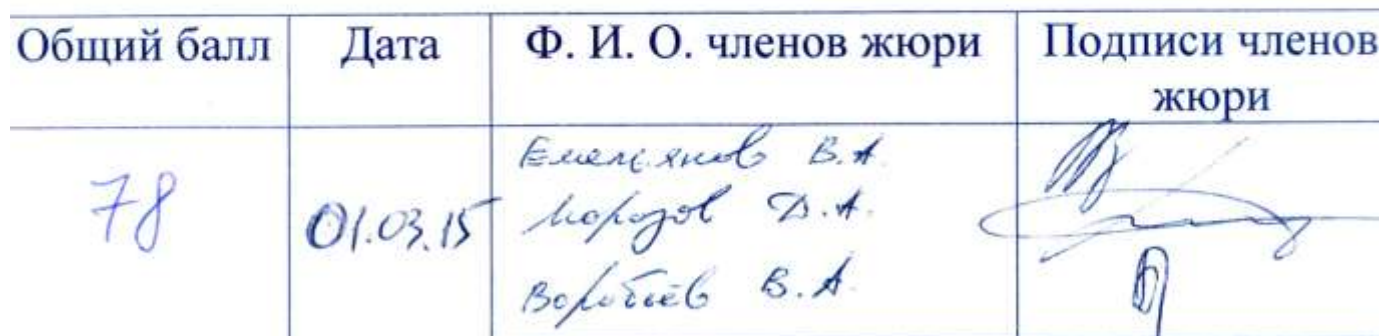 Общий балл Дата Ф. И. О. членов жюри Подписи членов
жюри
78 01.03.15 Емельянов В.А.
Морозов Д.А.
Воробьёв В.А.